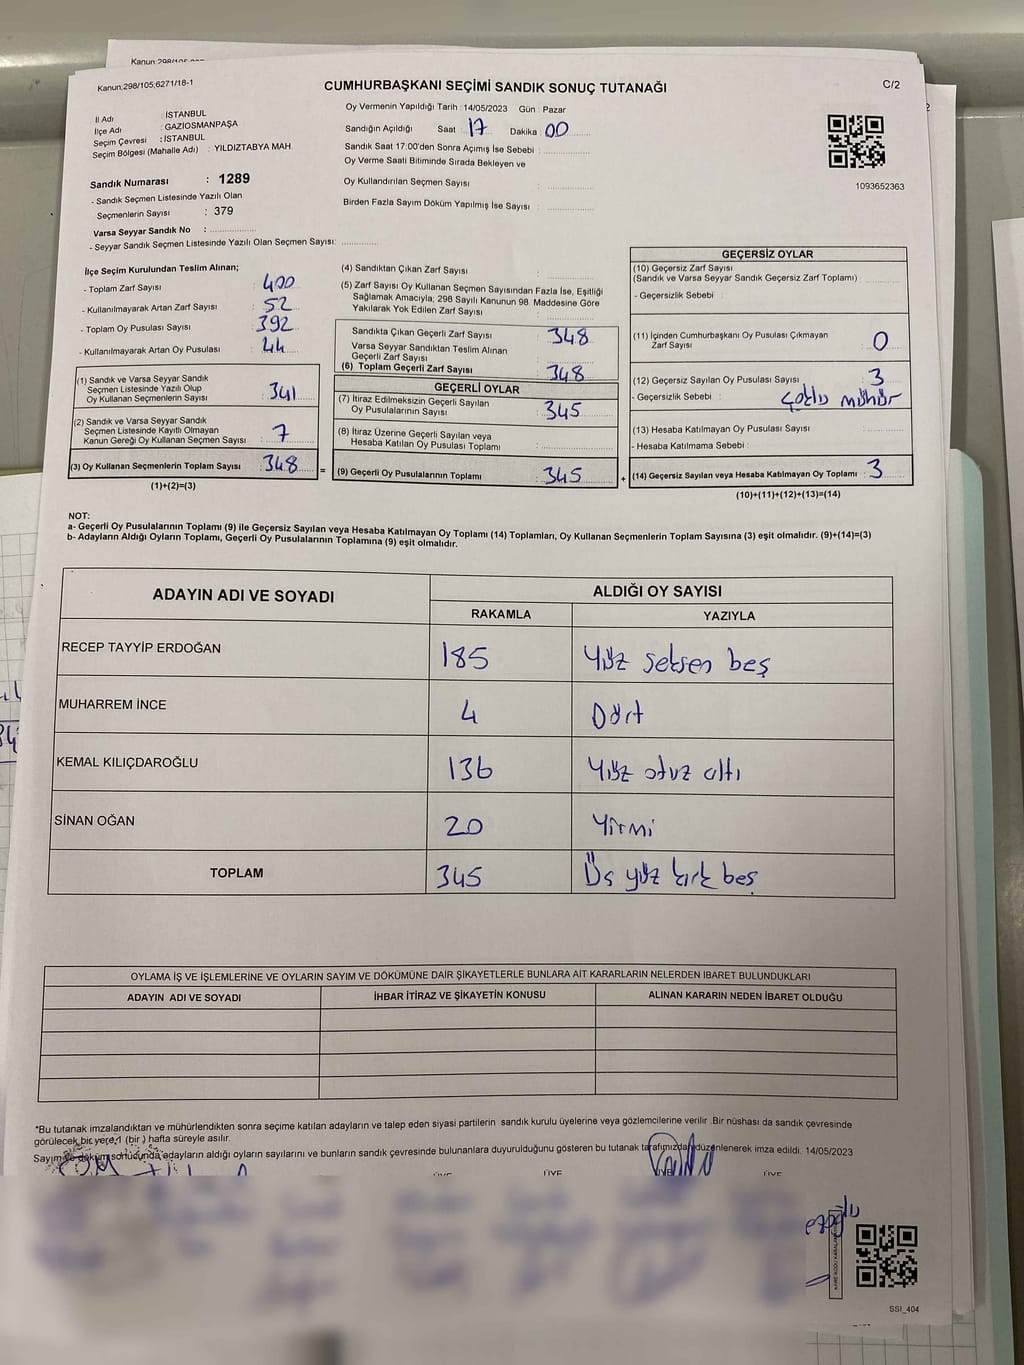 Kanun 298/105
Kanun;298/105;6271/18-1
CUMHURBAŞKANI SEÇİMİ SANDIK SONUÇ TUTANAĞI
C/2
İl Adı : İSTANBUL
İlçe Adı : GAZİOSMANPAŞA
Seçim Çevresi : İSTANBUL
Seçim Bölgesi (Mahalle Adı) : YILDIZTABYA MAH.
Oy Vermenin Yapıldığı Tarih : 14/05/2023 Gün : Pazar
Sandığın Açıldığı Saat : 17 Dakika : 00
Sandık Saat 17:00'den Sonra Açımış İse Sebebi :
Oy Verme Saati Bitiminde Sırada Bekleyen ve
Oy Kullandırılan Seçmen Sayısı :
Birden Fazla Sayım Döküm Yapılmış İse Sayısı :
1093652363
Sandık Numarası : 1289
- Sandık Seçmen Listesinde Yazılı Olan
Seçmenlerin Sayısı : 379
Varsa Seyyar Sandık No :
- Seyyar Sandık Seçmen Listesinde Yazılı Olan Seçmen Sayısı:
İlçe Seçim Kurulundan Teslim Alınan;
- Toplam Zarf Sayısı : 400
- Kullanılmayarak Artan Zarf Sayısı : 52
- Toplam Oy Pusulası Sayısı : 392
- Kullanılmayarak Artan Oy Pusulası : 44
(1) Sandık ve Varsa Seyyar Sandık
Seçmen Listesinde Yazılı Olup
Oy Kullanan Seçmenlerin Sayısı : 341
(2) Sandık ve Varsa Seyyar Sandık
Seçmen Listesinde Kayıtlı Olmayan
Kanun Gereği Oy Kullanan Seçmen Sayısı : 7
(3) Oy Kullanan Seçmenlerin Toplam Sayısı : 348
(1)+(2)=(3)
=
(4) Sandıktan Çıkan Zarf Sayısı :
(5) Zarf Sayısı Oy Kullanan Seçmen Sayısından Fazla İse, Eşitliği
Sağlamak Amacıyla; 298 Sayılı Kanunun 98. Maddesine Göre
Yakılarak Yok Edilen Zarf Sayısı :
Sandıkta Çıkan Geçerli Zarf Sayısı : 348
Varsa Seyyar Sandıktan Teslim Alınan
Geçerli Zarf Sayısı :
(6) Toplam Geçerli Zarf Sayısı : 348
GEÇERLİ OYLAR
(7) İtiraz Edilmeksizin Geçerli Sayılan
Oy Pusulalarının Sayısı : 345
(8) İtiraz Üzerine Geçerli Sayılan veya
Hesaba Katılan Oy Pusulası Toplamı :
(9) Geçerli Oy Pusulalarının Toplamı : 345
+
GEÇERSİZ OYLAR
(10) Geçersiz Zarf Sayısı
(Sandık ve Varsa Seyyar Sandık Geçersiz Zarf Toplamı) :
- Geçersizlik Sebebi :
(11) İçinden Cumhurbaşkanı Oy Pusulası Çıkmayan
Zarf Sayısı : 0
(12) Geçersiz Sayılan Oy Pusulası Sayısı : 3
- Geçersizlik Sebebi : çoklu mühür
(13) Hesaba Katılmayan Oy Pusulası Sayısı :
- Hesaba Katılmama Sebebi :
(14) Geçersiz Sayılan veya Hesaba Katılmayan Oy Toplamı : 3
(10)+(11)+(12)+(13)=(14)
NOT:
a- Geçerli Oy Pusulalarının Toplamı (9) ile Geçersiz Sayılan veya Hesaba Katılmayan Oy Toplamı (14) Toplamları, Oy Kullanan Seçmenlerin Toplam Sayısına (3) eşit olmalıdır. (9)+(14)=(3)
b- Adayların Aldığı Oyların Toplamı, Geçerli Oy Pusulalarının Toplamına (9) eşit olmalıdır.
ADAYIN ADI VE SOYADI ALDIĞI OY SAYISI
RAKAMLA YAZIYLA
RECEP TAYYİP ERDOĞAN 185 Yüz seksen beş
MUHARREM İNCE 4 Dört
KEMAL KILIÇDAROĞLU 136 Yüz otuz altı
SİNAN OĞAN 20 Yirmi
TOPLAM 345 Üç yüz kırk beş
OYLAMA İŞ VE İŞLEMLERİNE VE OYLARIN SAYIM VE DÖKÜMÜNE DAİR ŞİKAYETLERLE BUNLARA AİT KARARLARIN NELERDEN İBARET BULUNDUKLARI
ADAYIN ADI VE SOYADI İHBAR İTİRAZ VE ŞİKAYETİN KONUSU ALINAN KARARIN NEDEN İBARET OLDUĞU
*Bu tutanak imzalandıktan ve mühürlendikten sonra seçime katılan adayların ve talep eden siyasi partilerin sandık kurulu üyelerine veya gözlemcilerine verilir. Bir nüshası da sandık çevresinde
görülecek bir yere 1 (bir) hafta süreyle asılır.
Sayım ve döküm sonucunda adayların aldığı oyların sayılarını ve bunların sandık çevresinde bulunanlara duyurulduğunu gösteren bu tutanak tarafımızdan düzenlenerek imza edildi. 14/05/2023
ÜYE ÜYE ÜYE ÜYE
SSI_404